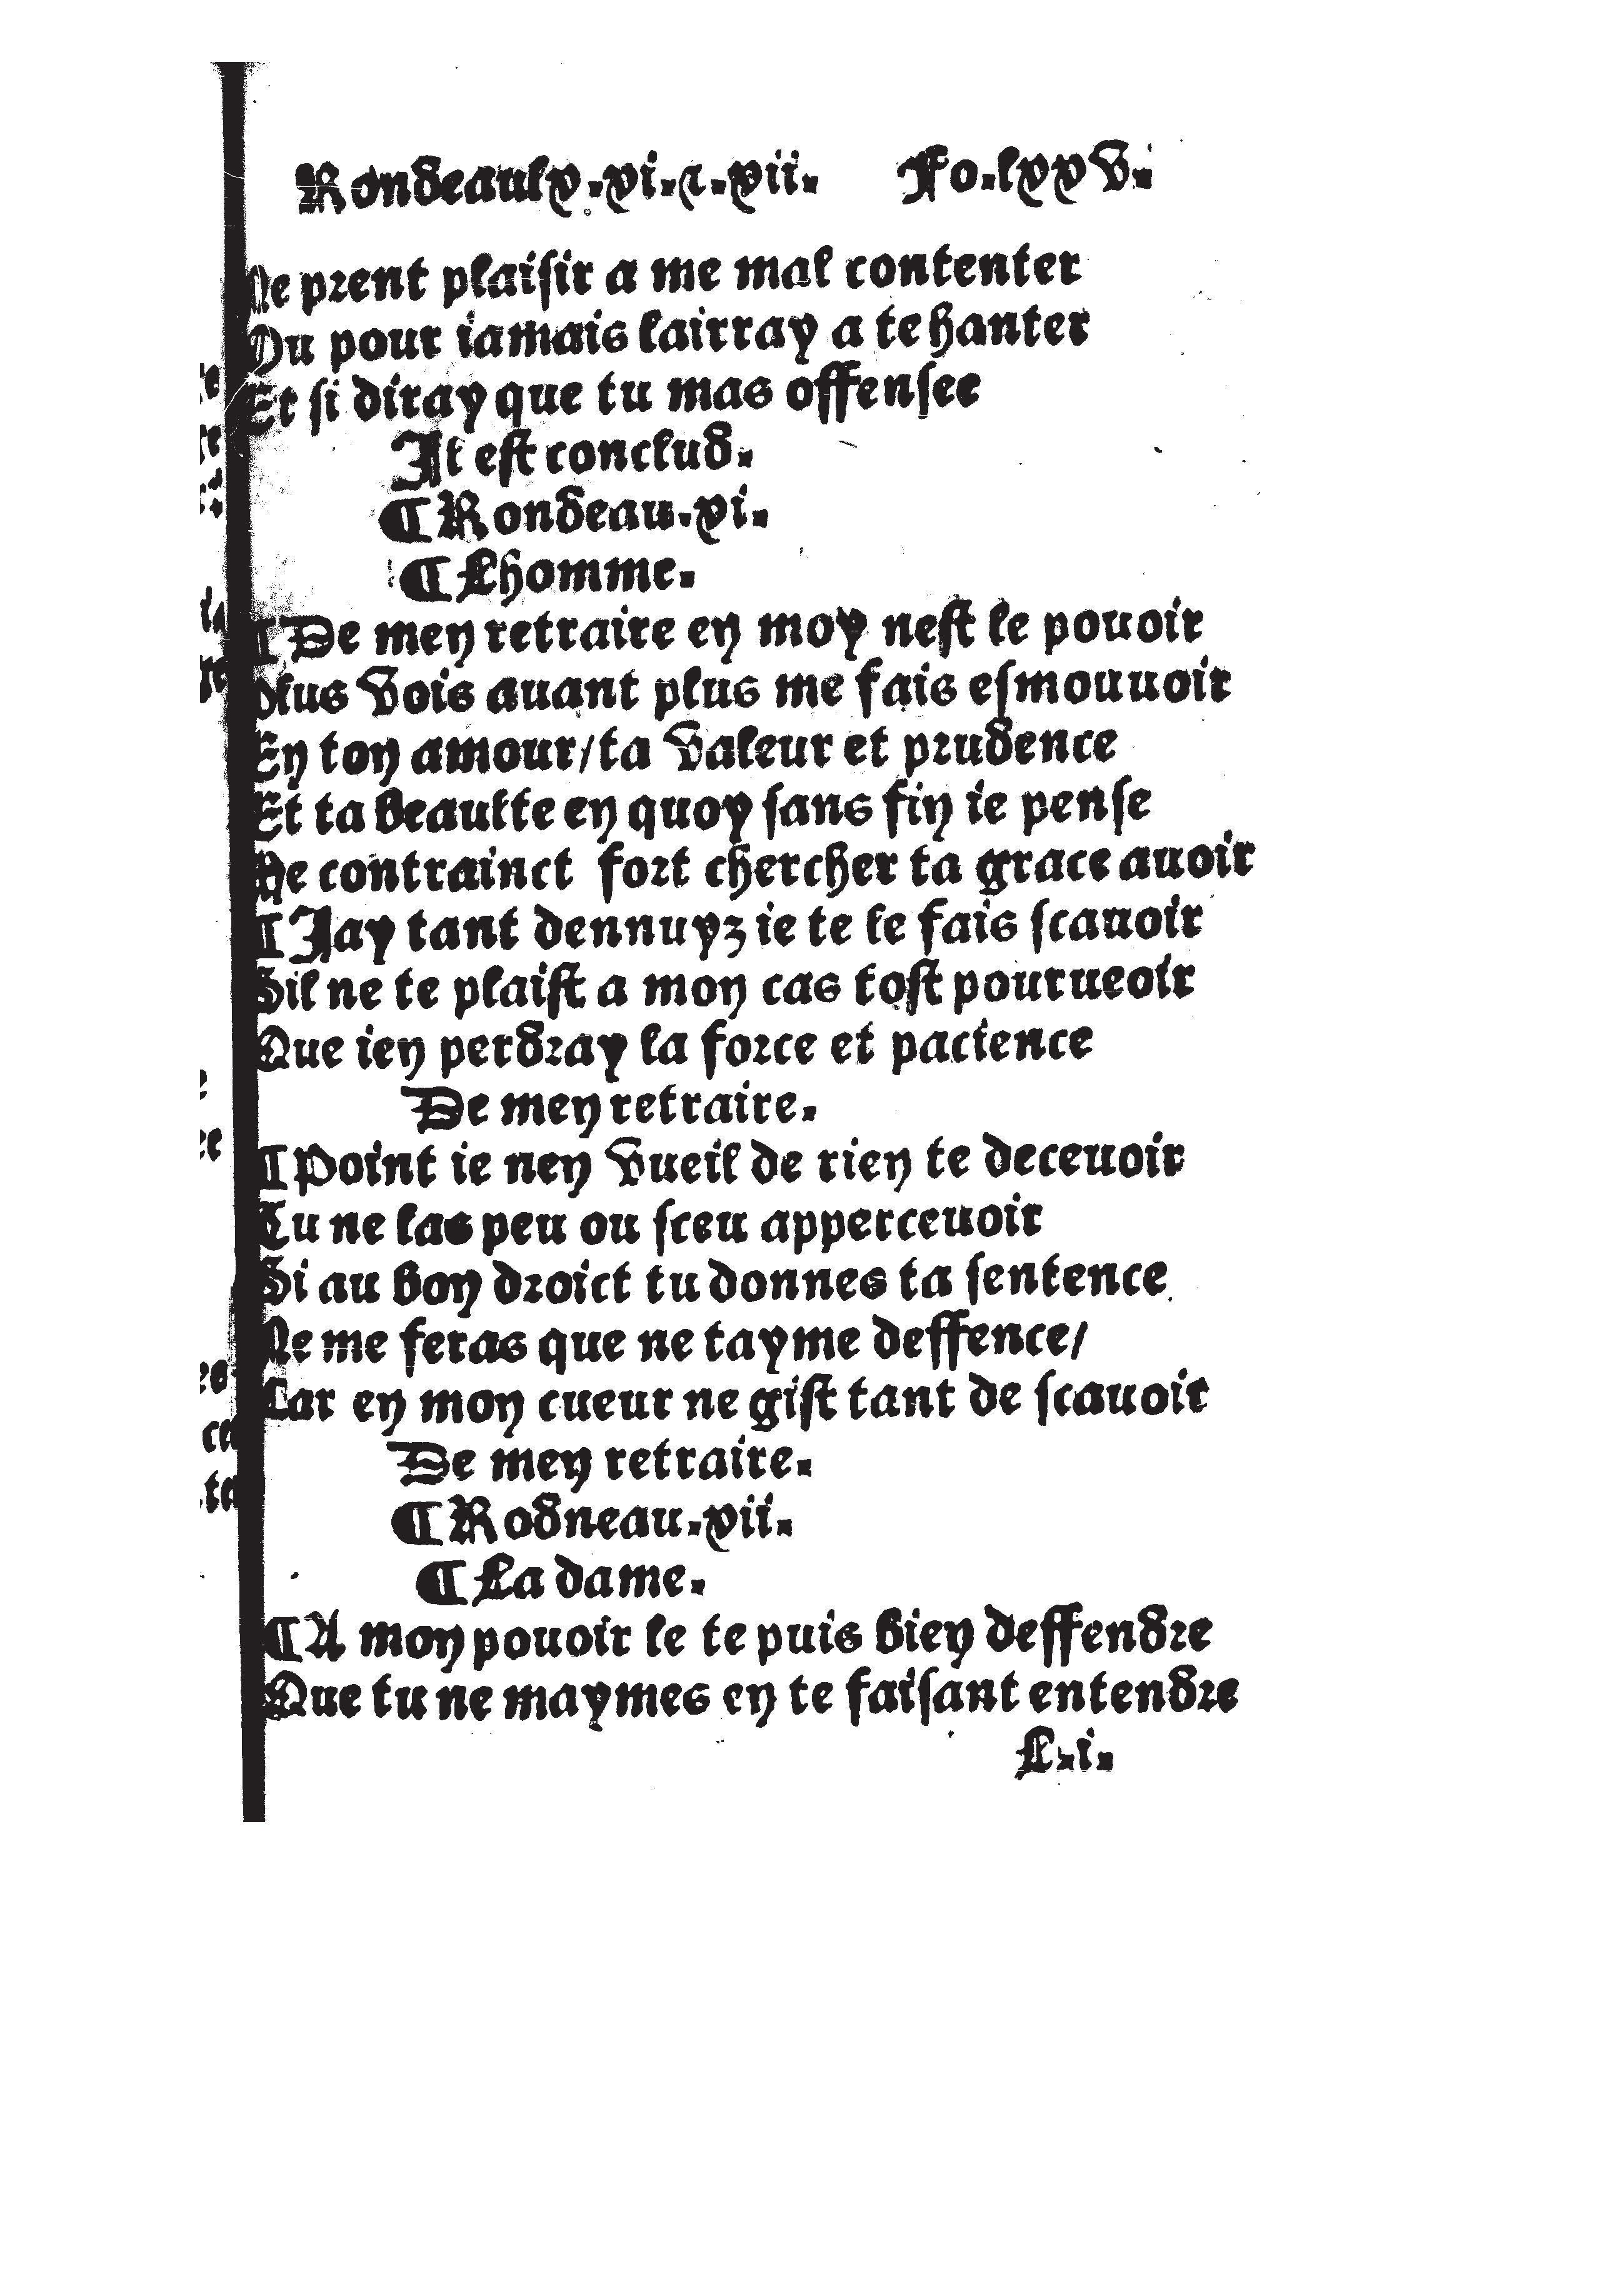 Rondeaulx.xi.⁊.xii. Fo.lxxv.
Ne prent plaisir a me mal contenter
Ou pour iamais lairray a te hanter
Et si diray que tu mas offensee
Il est conclud.
¶ Rondeau.xi.
¶ Lhomme.
¶ De men retraire en moy nest le pouoir
Plus vois auant plus me fais esmouuoir
En ton amour/ta valeur et prudence
Et ta beaulte en quoy sans fin ie pense
Me contrainct fort chercher ta grace auoir
¶ Jay tant dennuyz ie te le fais scauoir
Sil ne te plaist a mon cas tost pourueoir
Que ien perdray la force et pacience
De men retraire.
¶ Point ie nen vueil de rien te deceuoir
Tu ne las peu ou sceu apperceuoir
Si au bon droict tu donnes ta sentence
Ne me feras que ne tayme deffence/
Car en mon cueur ne gist tant de scauoir
De men retraire.
¶ Rodneau.xii.
¶ La dame.
¶ A mon pouoir le te puis bien deffendre
Que tu ne maymes en te faisant entendre
L.i.